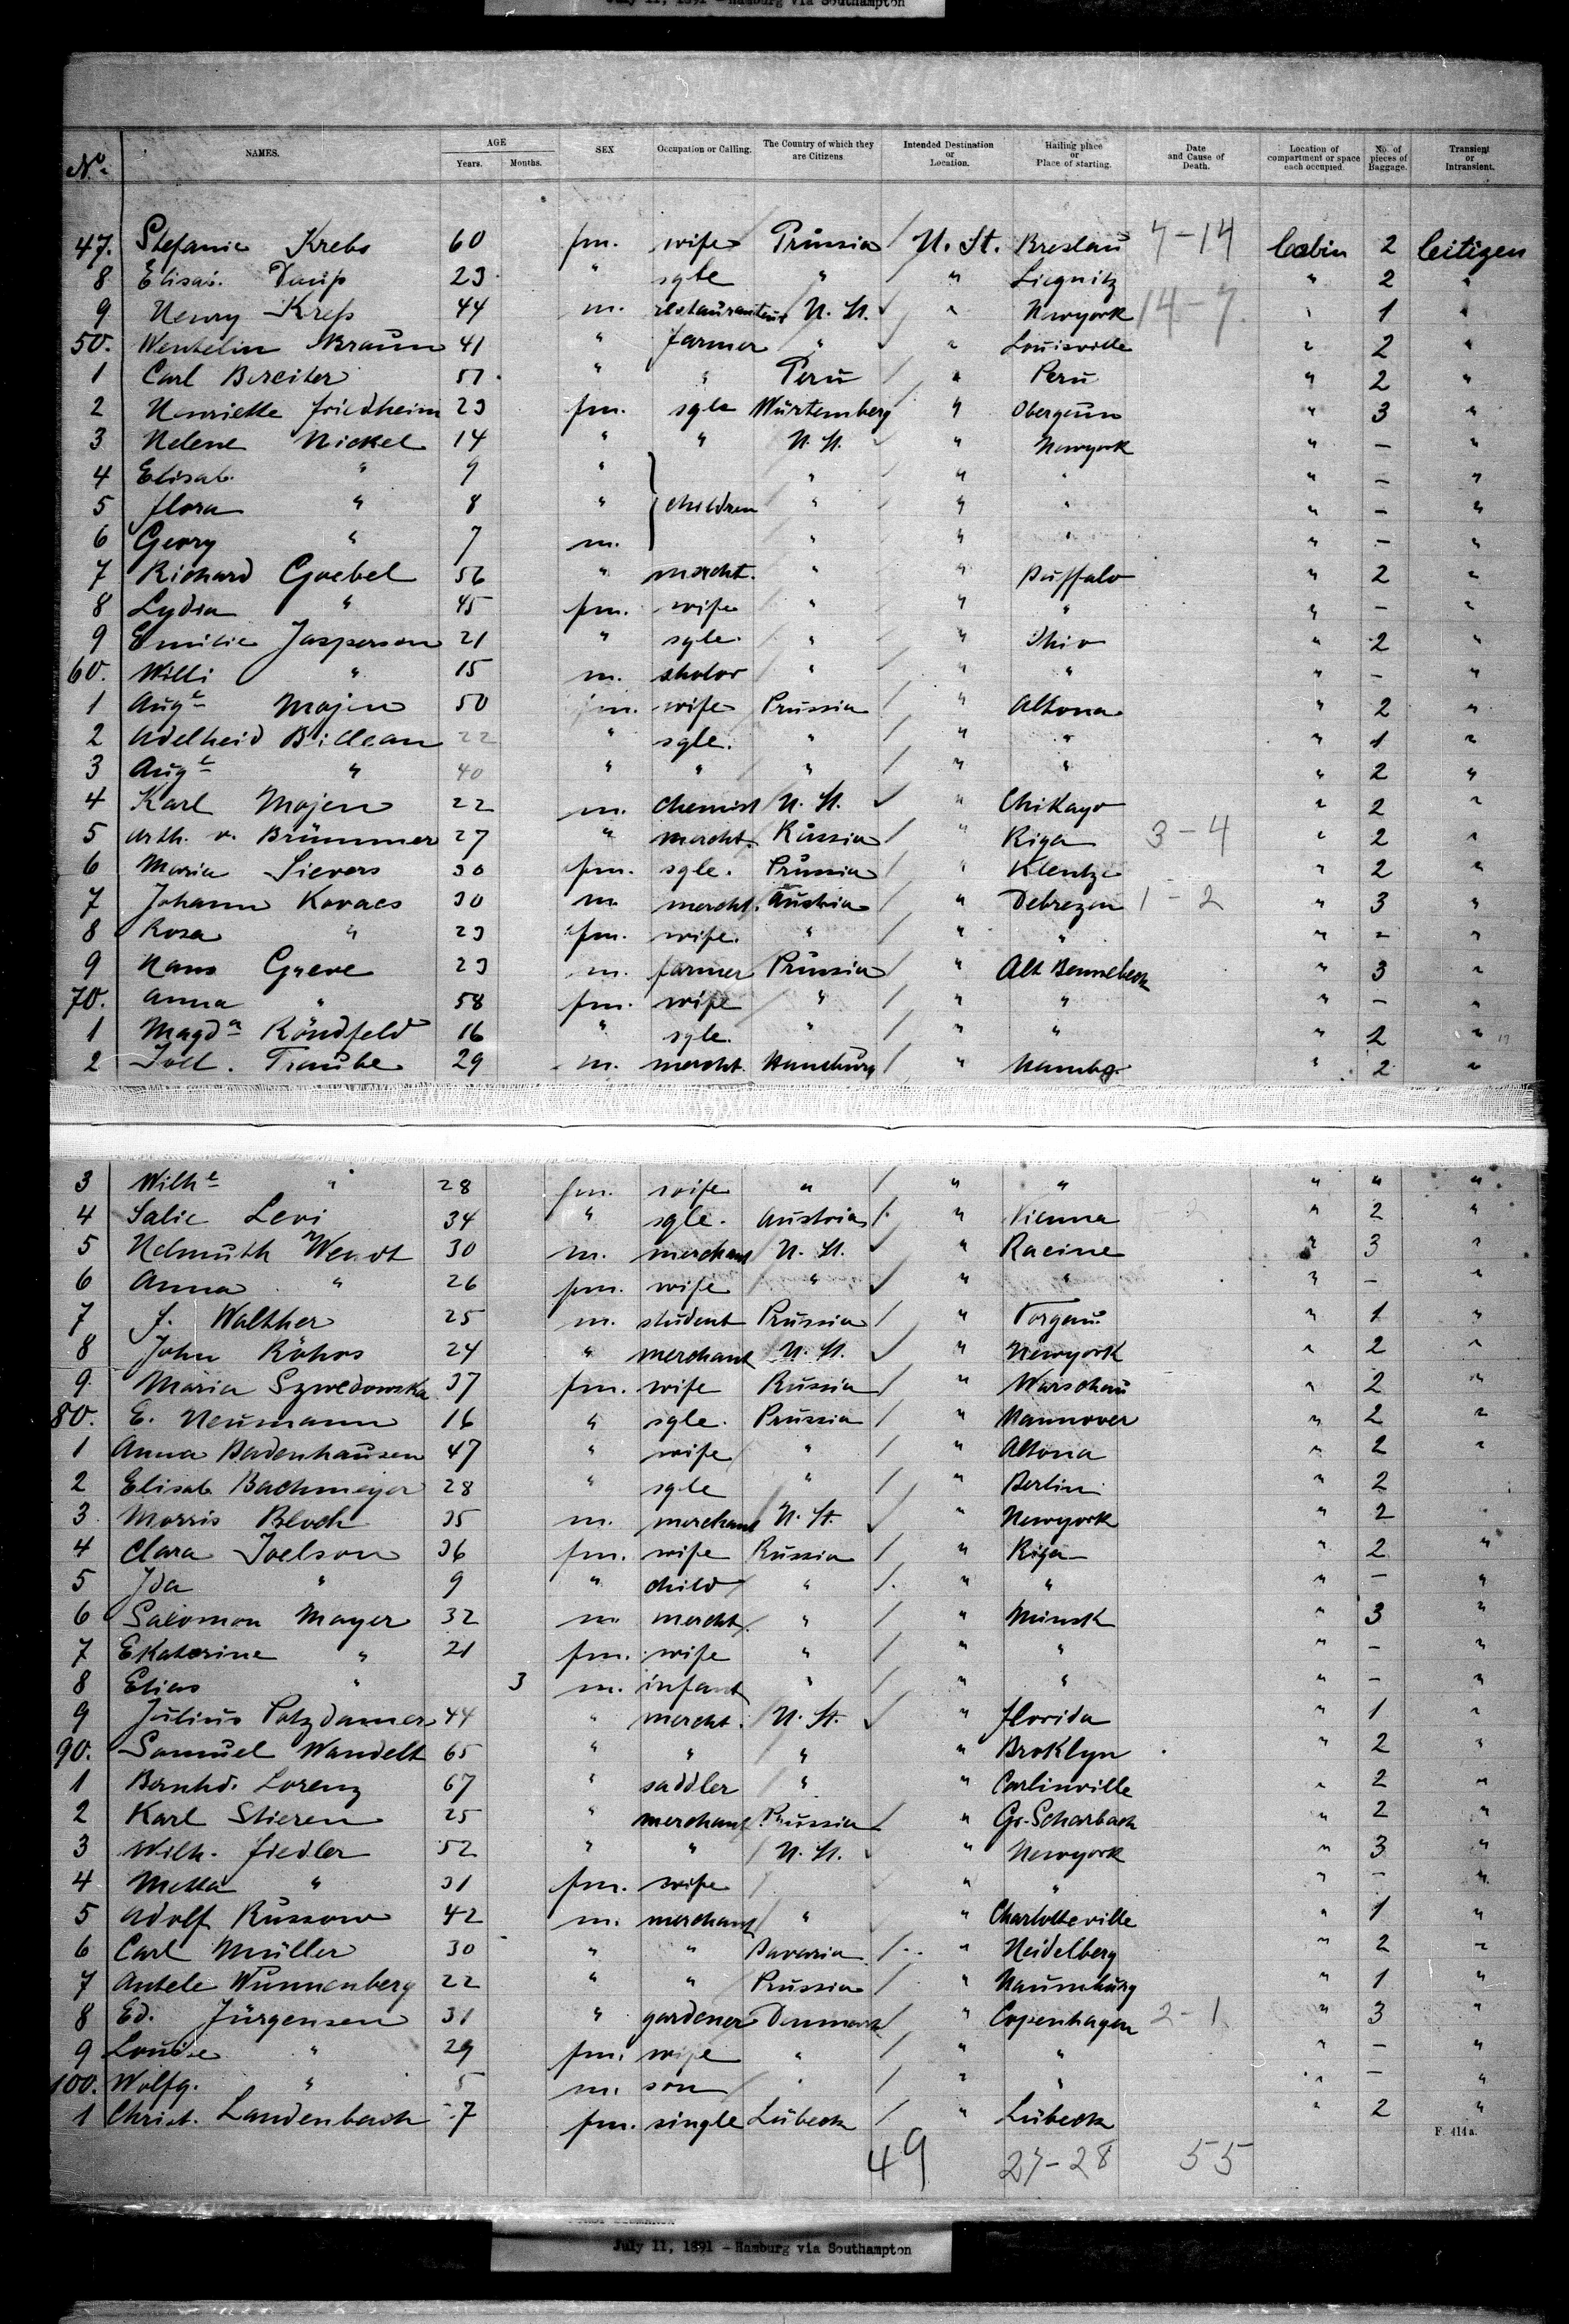 July 11, 1891 - Hamburg via Southampton
No. NAMES. AGE Years. Months. SEX Occupation or Calling. The Country of which they are Citizens Intended Destination or Location. Hailing place or Place of starting. Date and Cause of Death. Location of compartment or space each occupied. No. of pieces of Baggage. Transient or Intransient.
47. Stefanie Krebs 60 fm. wife Prussia / U. St. Breslau 7-14 Cabin 2 Citizen
8 Elisab. 23 " sgle " " Liegnitz " 2 "
9 Henry Kreß 44 m. restaurateur U. St. ✓ " Newyork 14-7. " 1 "
50. Wentelin Braun 41 " farmer " ✓ " Louisville " 2 "
1 Carl Bereiter 51 " " Peru / " Peru " 2 "
2 Henriette Friedheim 23 fm. sgle Würtemberg " " 3 "
3 Helene Nickel 14 " " U. St. ✓ " Newyork " - "
4 Elisab. " 9 " " " " " - "
5 Flora " 8 " children " " " " - "
6 Georg " 7 m. " " " " - "
7 Richard Goebel 56 " mercht. " " Buffalo " 2 "
8 Lydia " 45 fm. wife " " " " - "
9 Emilie Jasperson 21 " sgle. " " Ohio " 2 "
60. Willi " 15 m. skolor " " " " - "
1 Auge Mojen 50 fm. wife Prussia / " Altona " 2 "
2 Adelheid Billean 22 " sgle. " / " " " 1 "
3 Auge " 40 " " " / " " " 2 "
4 Karl Mojen 22 m. chemist U. St. ✓ " Chikago " 2 "
5 Arth. v. Brümmer 27 " mercht. Russia / " Riga 3-4 " 2 "
6 Maria Sievers 30 fm. sgle. Prussia / " Klentze " 2 "
7 Johann Kovacs 30 m mercht. Austria / " Debrezen 1-2 " 3 "
8 Rosa " 23 fm. wife. " / " " " - "
9 Hans Greve 23 m. farmer Prussia / " Alt Bennebeck " 3 "
70. Anna " 58 fm. wife " / " " " - "
1 Magda Röndfeld 16 " sgle. " / " " " 2 "
2 Traube 29 m. mercht. Hamburg / " Hambg. " 2 "
3 Wilhe " 28 fm. wife " / " " " " "
4 Salie Levi 34 " sgle. Austria / " Vienna " 2 "
5 Helmuth Wendt 30 m. merchant U. St. ✓ " Racine " 3 "
6 Anna " 26 fm. wife " ✓ " " " - "
7 F. Walther 25 m. student Prussia / " Torgau. " 1 "
8 John Röhrs 24 " merchant U. St. ✓ " Newyork " 2 "
9 Maria Szwedowska 37 fm. wife Russia / " Warschau " 2 "
80. E. Neumann 16 " sgle. Prussia / " Hannover " 2 "
1 Anna Badenhausen 47 " wife " / " Altona " 2 "
2 Elisab. Bachmeyer 28 " sgle " / " Berlin " 2
3 Morris Bloch 35 m. merchant U. St. ✓ " Newyork " 2
4 Clara Joelson 36 fm. wife Russia / " Riga " 2 "
5 Ida " 9 " child " / " " " - "
6 Salomon Mayer 32 m mercht. " / " Minsk " 3 "
7 Ekaterine " 21 fm. wife " / " " " - "
8 Elias " 3 m. infant " / " " " - "
9 Julius Potzdamer 44 " mercht. U. St. ✓ " Florida " 1 "
90. Samuel Wandelt 65 " " " " Broklyn " 2 "
1 Bernhd. Lorenz 67 " saddler " " Carlinville " 2 "
2 Karl Stieren 25 " merchant Prussia / " Gr. Scharbach " 2 "
3 Wilh. Fiedler 52 " " U. St. ✓ " Newyork " 3 "
4 Metta " 31 fm. wife " " " - "
5 Adolf Russow 42 m. merchant " " Charlotteville " 1 "
6 Carl Müller 30 " " Bavaria / " Heidelberg " 2 "
7 Antele Wunnenberg 22 " " Prussia / " Naumburg " 1 "
8 Ed. Jürgensen 31 " gardener Denmark / " Copenhagen 2-1 " 3 "
9 Louise " 29 fm. wife " / " " " - "
100. Wolfg. " 5 m. son " / " " " - "
1 Christ. Landenbach 7 fm. single Lübeck / " Lübeck " 2 "
F. 414a.
49 27-28 55
July 11, 1891 - Hamburg via Southampton